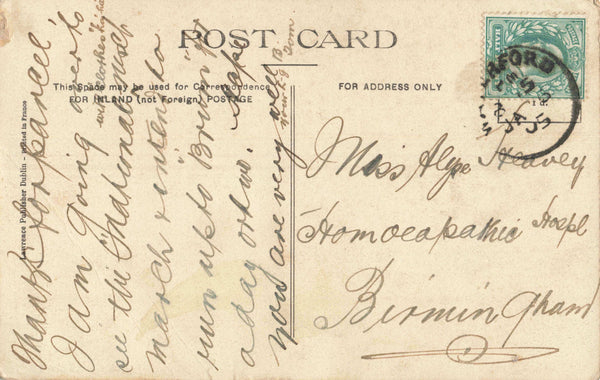 POST CARD
This Space may be used for Correspondence
FOR INLAND (not Foreign) POSTAGE
FOR ADDRESS ONLY
Lawrence Publisher Dublin - Printed in France
Thanks for parcel
I am going over to
see the "Nationals"
march & intend to
run up to B'
a day or two. Hope
you are very well
Miss Heavey
Homoeopathic Hospl
Birmingham